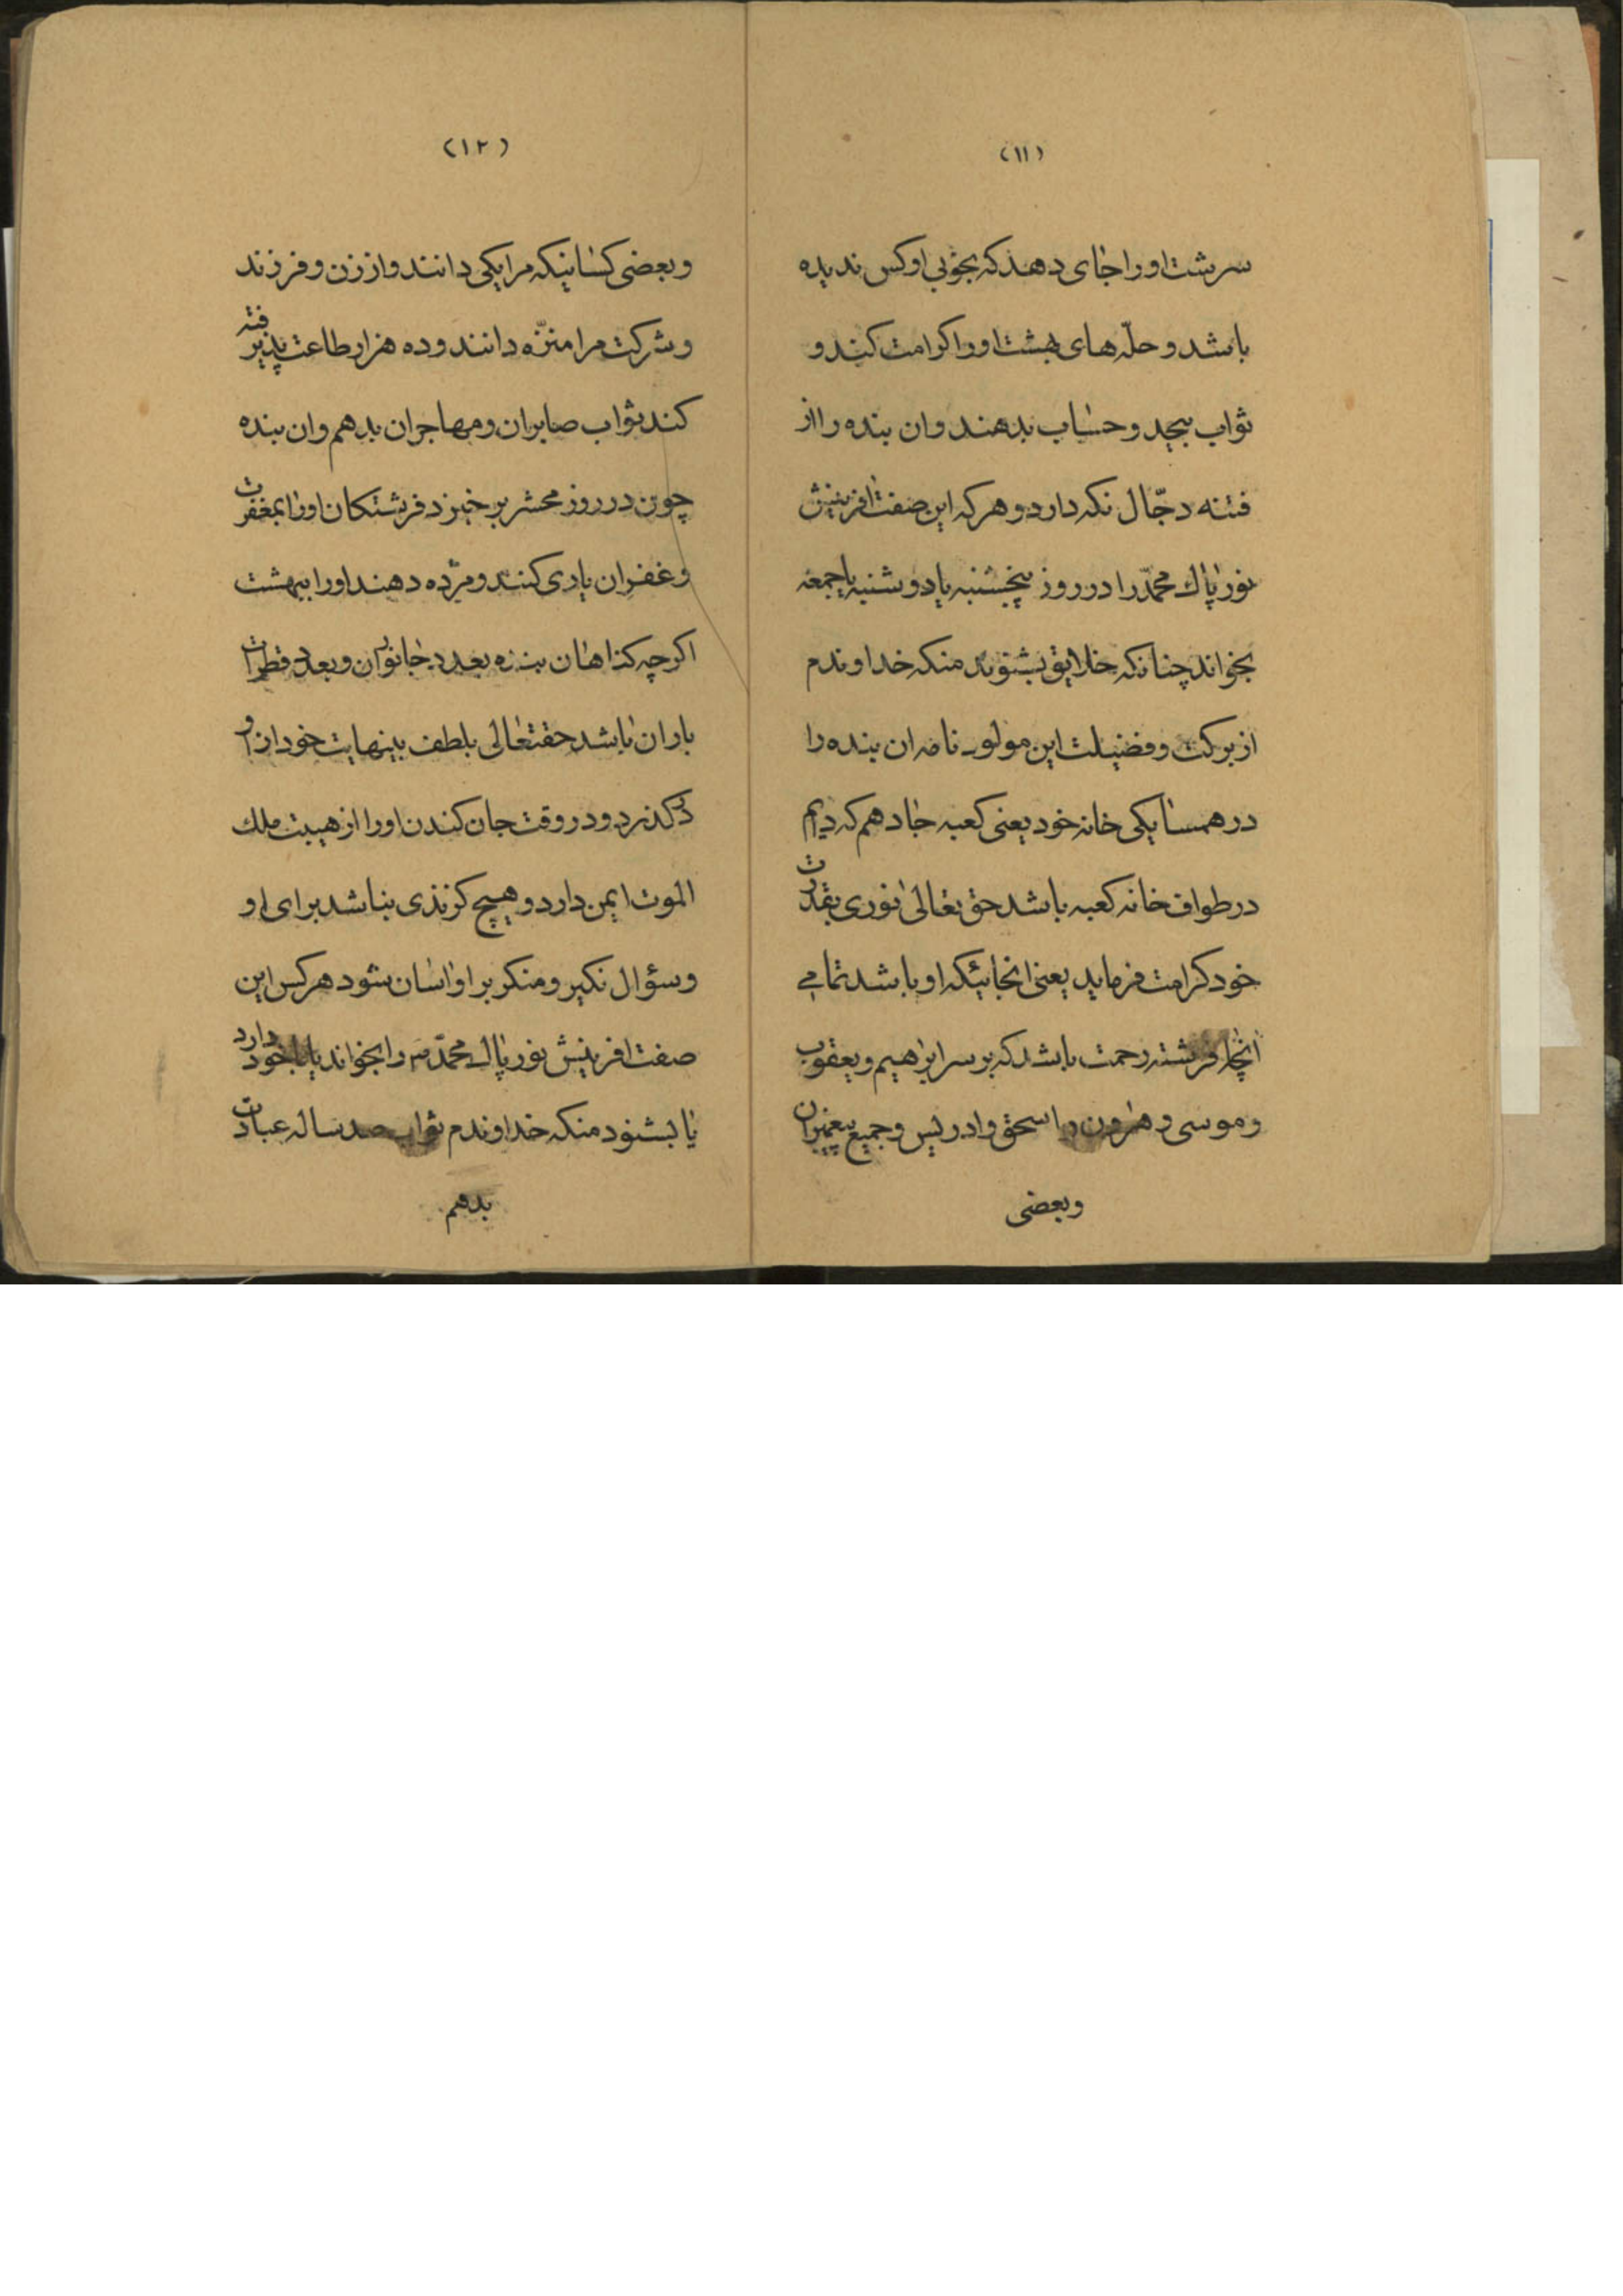 (١١)
سرشت او را جای دهد که بخوبی او کس ندیده
باشد و حلّه های بهشت او را کرامت کند و
ثواب بیحد و حساب بدهند و ان بنده را از
فتنه دجّال نکه دارد و هر که این صفت افرینش
نور پاک محمّد را در روز پنجشنبه یا دوشنبه یا جمعه
بخواند چنانکه خلایق بشنوند منکه خداوندم
از برکت و فضیلت این مولود نامه ان بنده را
در همسایکی خانه خود یعنی کعبه جا دهم که دایم
در طواف خانه کعبه باشد حق تعالی نوری بقدرت
خود کرامت فرماید یعنی انجائیکه او باشد تمامی
انجا فرشته رحمت باشد که بر سر ابراهیم و یعقوب
و موسی و هرون و اسحق و ادریس و جمیع پیغمبران
و بعضی
(١٢)
و بعضی کسانیکه مرا یکی دانند و از زن و فرزند
و شرکت مرا منزّه دانند و ده هزار طاعت پذیرفته
کند ثواب صابران و مهاجران بدهم و ان بنده
چون در روز محشر بر خیزد فرشتکان او را بمغفرت
و غفران یاری کنند و مژده دهند او را ببهشت
اکرچه کناهان بنده بعدد جانوران و بعدد قطرات
باران باشد حقتعالی بلطف بینهایت خود از او
در کذرد و در وقت جان کندن او را از هیبت ملك
الموت ایمن دارد و هیچ کزندی نباشد برای او
و سؤال نکیر و منکر بر او اسان شود هر کس این
صفت افرینش نور پاک محمّد ص را بخواند یا با خود دارد
یا بشنود منکه خداوندم ثواب صد ساله عبادت
بدهم